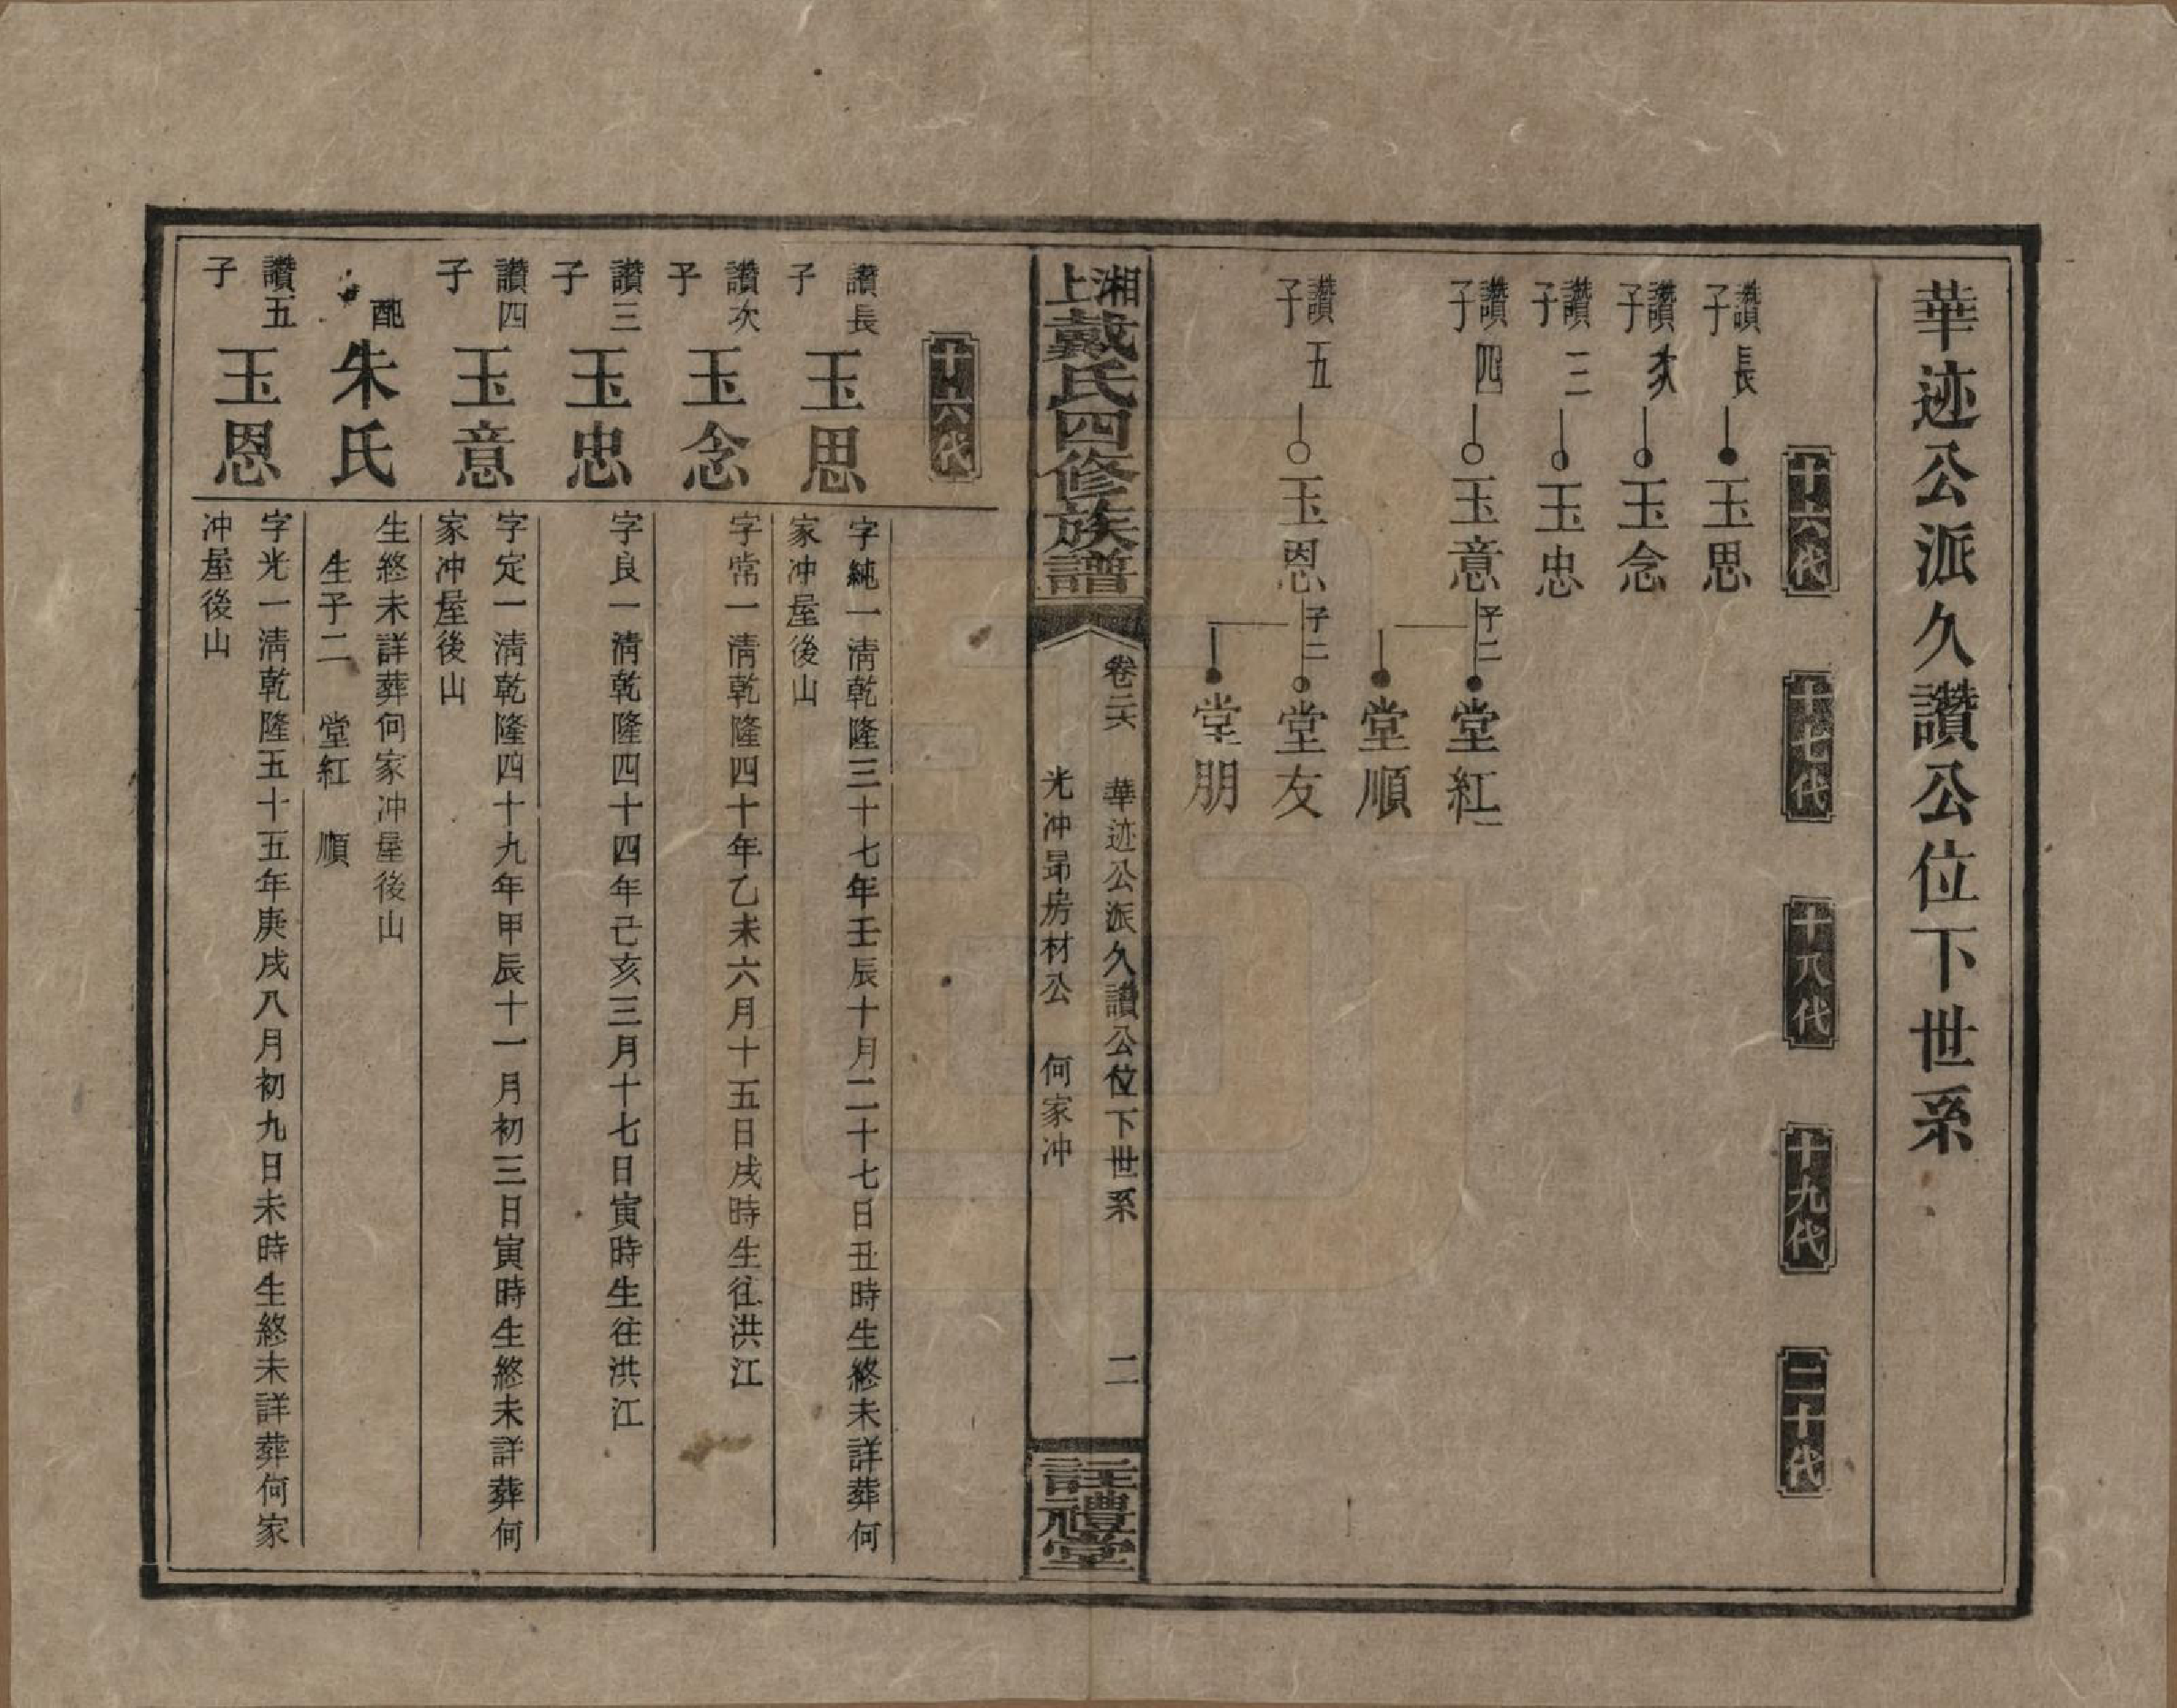 華迹公派久讚公位下世系
十六代
十七代
十八代
十九代
二十代
讚長子
玉思
讚次子
玉念
讚三子
玉忠
讚四子
玉意
子二
堂紅
堂順
讚五子
玉恩
子二
堂友
堂朋
湘上戴氏四修族譜
卷二六
華迹公派久讚公位下世系
二
光冲昻房材公 何家冲
註禮堂
十六代
讚長子
玉思
字純一清乾隆三十七年壬辰十月二十七日丑時生終未詳葬何
家冲屋後山
讚次子
玉念
字常一清乾隆四十年乙未六月十五日戌時生往洪江
讚三子
玉忠
字良一清乾隆四十四年己亥三月十七日寅時生往洪江
讚四子
玉意
字定一清乾隆四十九年甲辰十一月初三日寅時生終未詳葬何
家冲屋後山
配
朱氏
生終未詳葬何家冲屋後山
生子二 堂紅 順
讚五子
玉恩
字光一清乾隆五十五年庚戌八月初九日未時生終未詳葬何家
冲屋後山